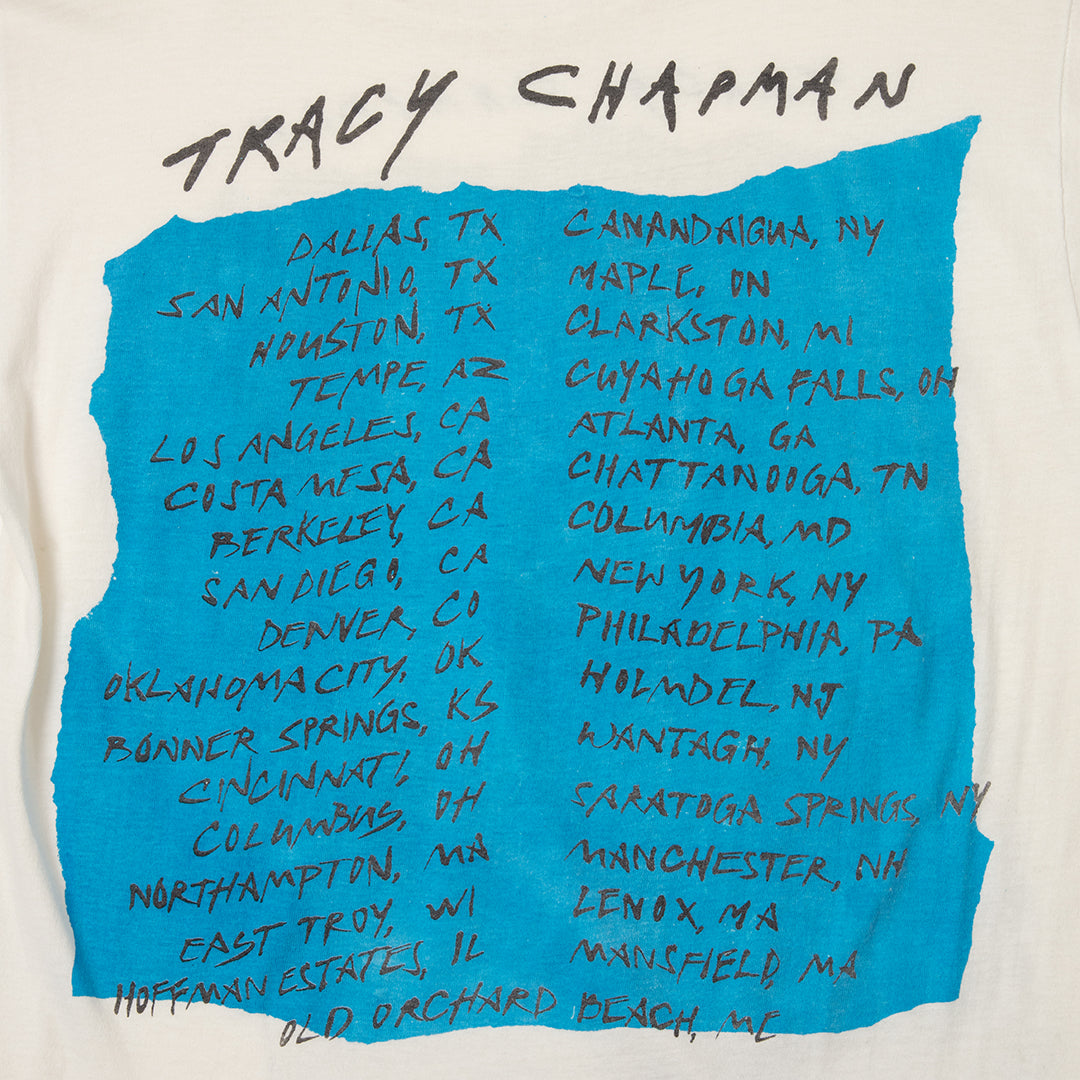 TRACY CHAPMAN
DALLAS, TX
SAN ANTONIO, TX
HOUSTON, TX
TEMPE, AZ
LOS ANGELES, CA
COSTA MESA, CA
BERKELEY, CA
SAN DIEGO, CA
DENVER, CO
OKLAHOMA CITY, OK
BONNER SPRINGS, KS
CINCINNATI, OH
COLUMBUS, OH
NORTHAMPTON, MA
EAST TROY, WI
HOFFMAN ESTATES, IL
CANANDAIGUA, NY
MAPLE, ON
CLARKSTON, MI
CUYAHOGA FALLS, OH
ATLANTA, GA
CHATTANOOGA, TN
COLUMBIA, MD
NEW YORK, NY
PHILADELPHIA, PA
HOLMDEL, NJ
WANTAGH, NY
SARATOGA SPRINGS, NY
MANCHESTER, NH
LENOX, MA
MANSFIELD, MA
OLD ORCHARD BEACH, ME